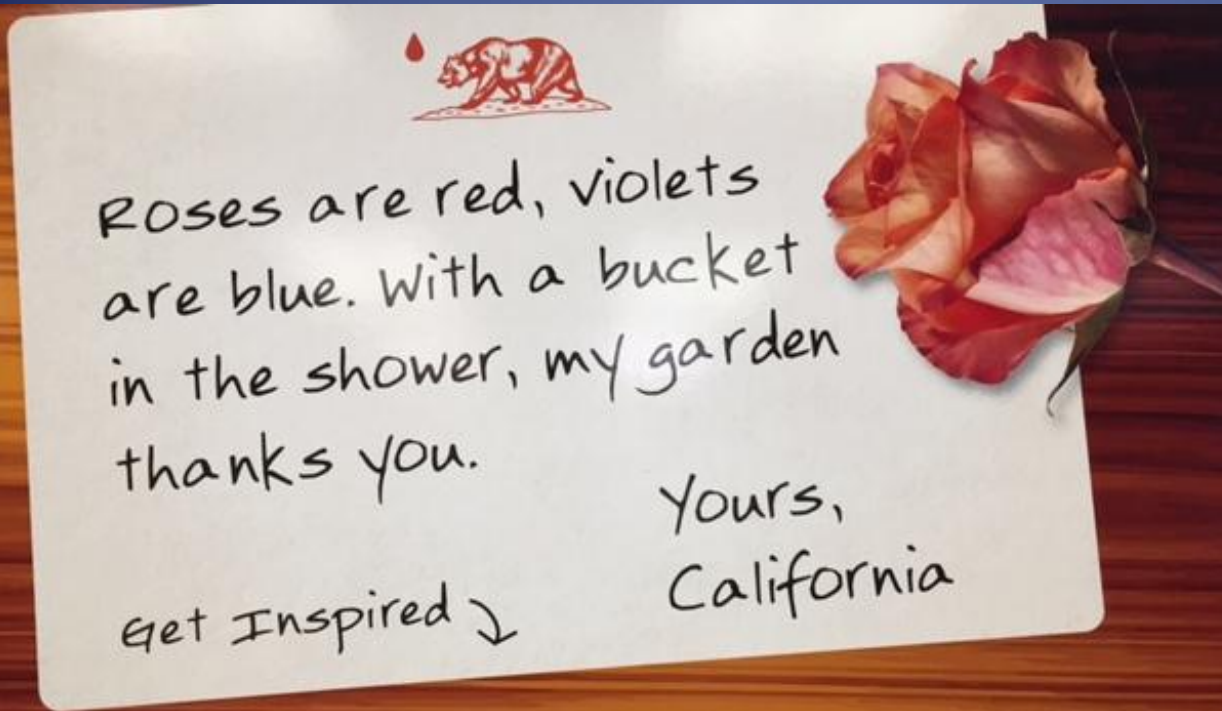 Roses are red, violets
are blue. With a bucket
in the shower, my garden
thanks you.
Yours,
California
Get Inspired